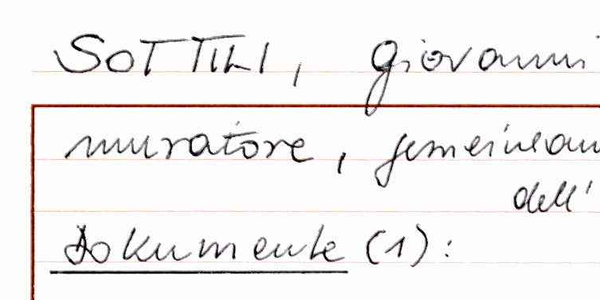 SOTTILI, Giovanni
muratore, gemeinsam
dell'
Dokumente (1):